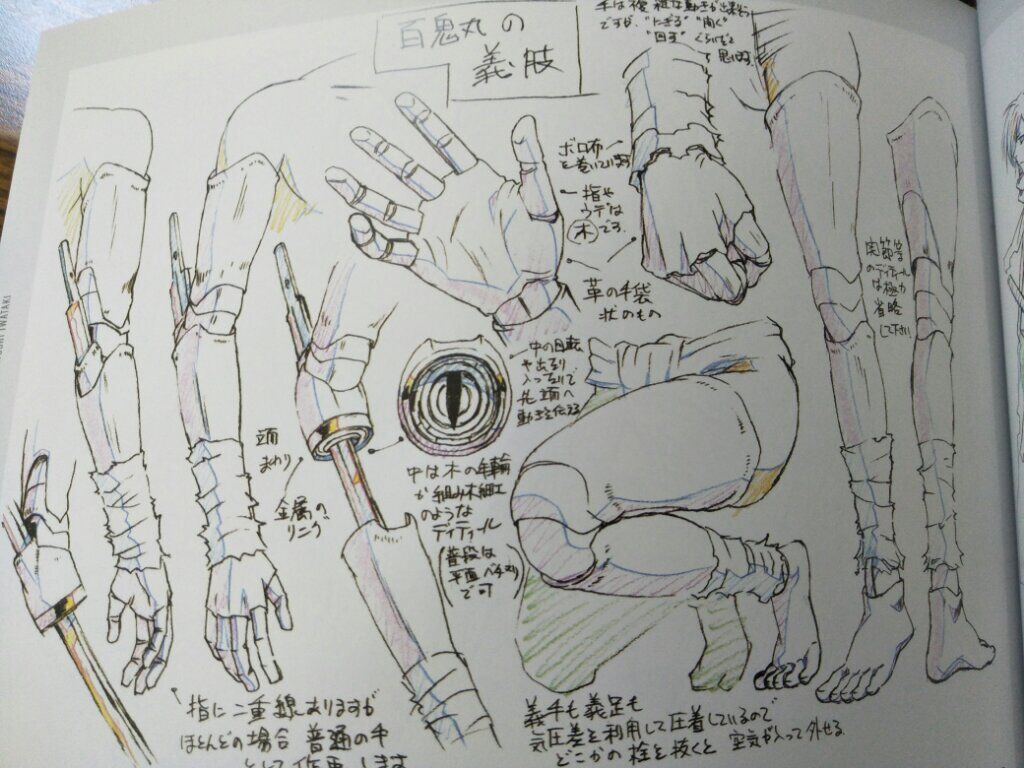 百鬼丸の
義肢
手は複雑な動きが出来そう
ですが、"にぎる" "開く"
"回す" くらいだと
思います
ボロ布
を巻いています
指や
ウデは
木です。
革の手袋
状のもの
関節等
のディティール
は極力
省略
して下さい
中の自転
や出たり
入ったりで
先端へ
動きを伝える
端
まわり
金属の
リング
中は木の年輪
か組み木細工
のような
ディティール
(普段は
平面ベタヌリ
で可)
指に二重線ありますが
ほとんどの場合 普通の手
として作画します
義手も義足も
気圧差を利用して圧着しているので
どこかの栓を抜くと 空気が入って外せる
IWATAKI